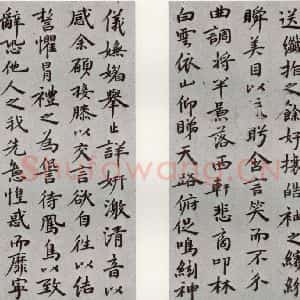 送纖指之餘好攘皓袖之繽紛
瞬美目以流眄含言笑而不分
曲調將半景落西軒悲商叩林
白雲依山仰睇天路俯促鳴絃神
儀嫵媚舉止詳妍激清音以
感余願接膝以交言欲自往以結
誓懼冒禮之為諐待鳳鳥以致
辭恐他人之我先意惶惑而靡寧
Shufawang.CN